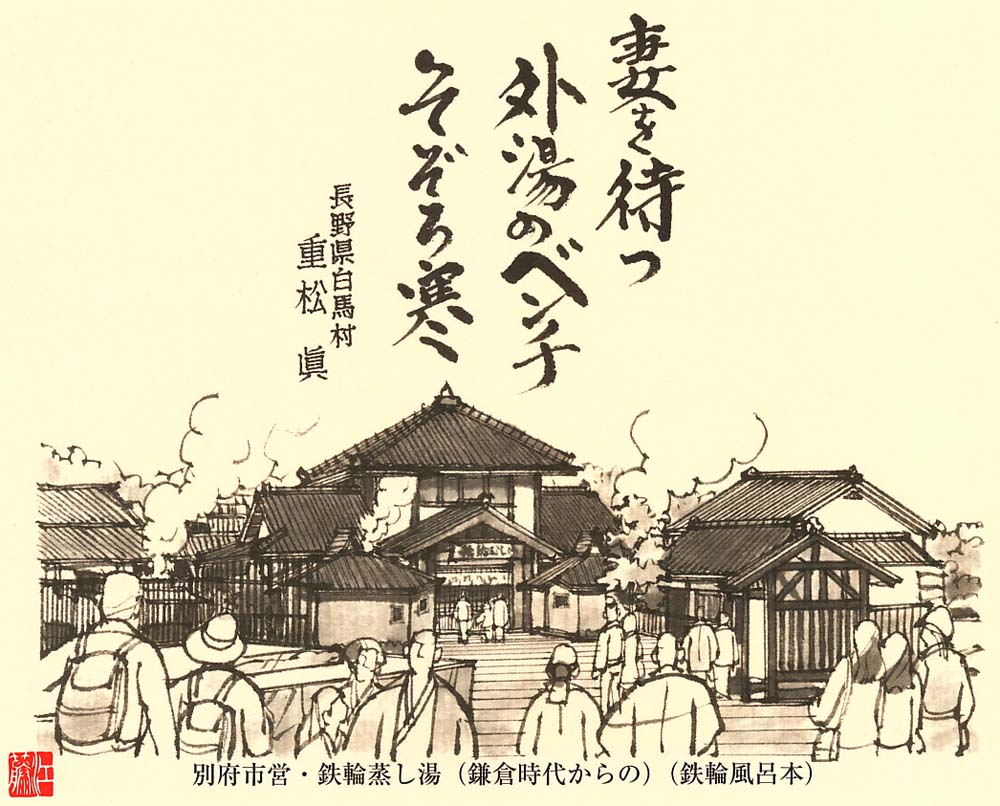 妻を待つ
外湯のベンチ
そぞろ寒
長野県白馬村
重松 眞
別府市営・鉄輪蒸し湯（鎌倉時代からの）（鉄輪風呂本）